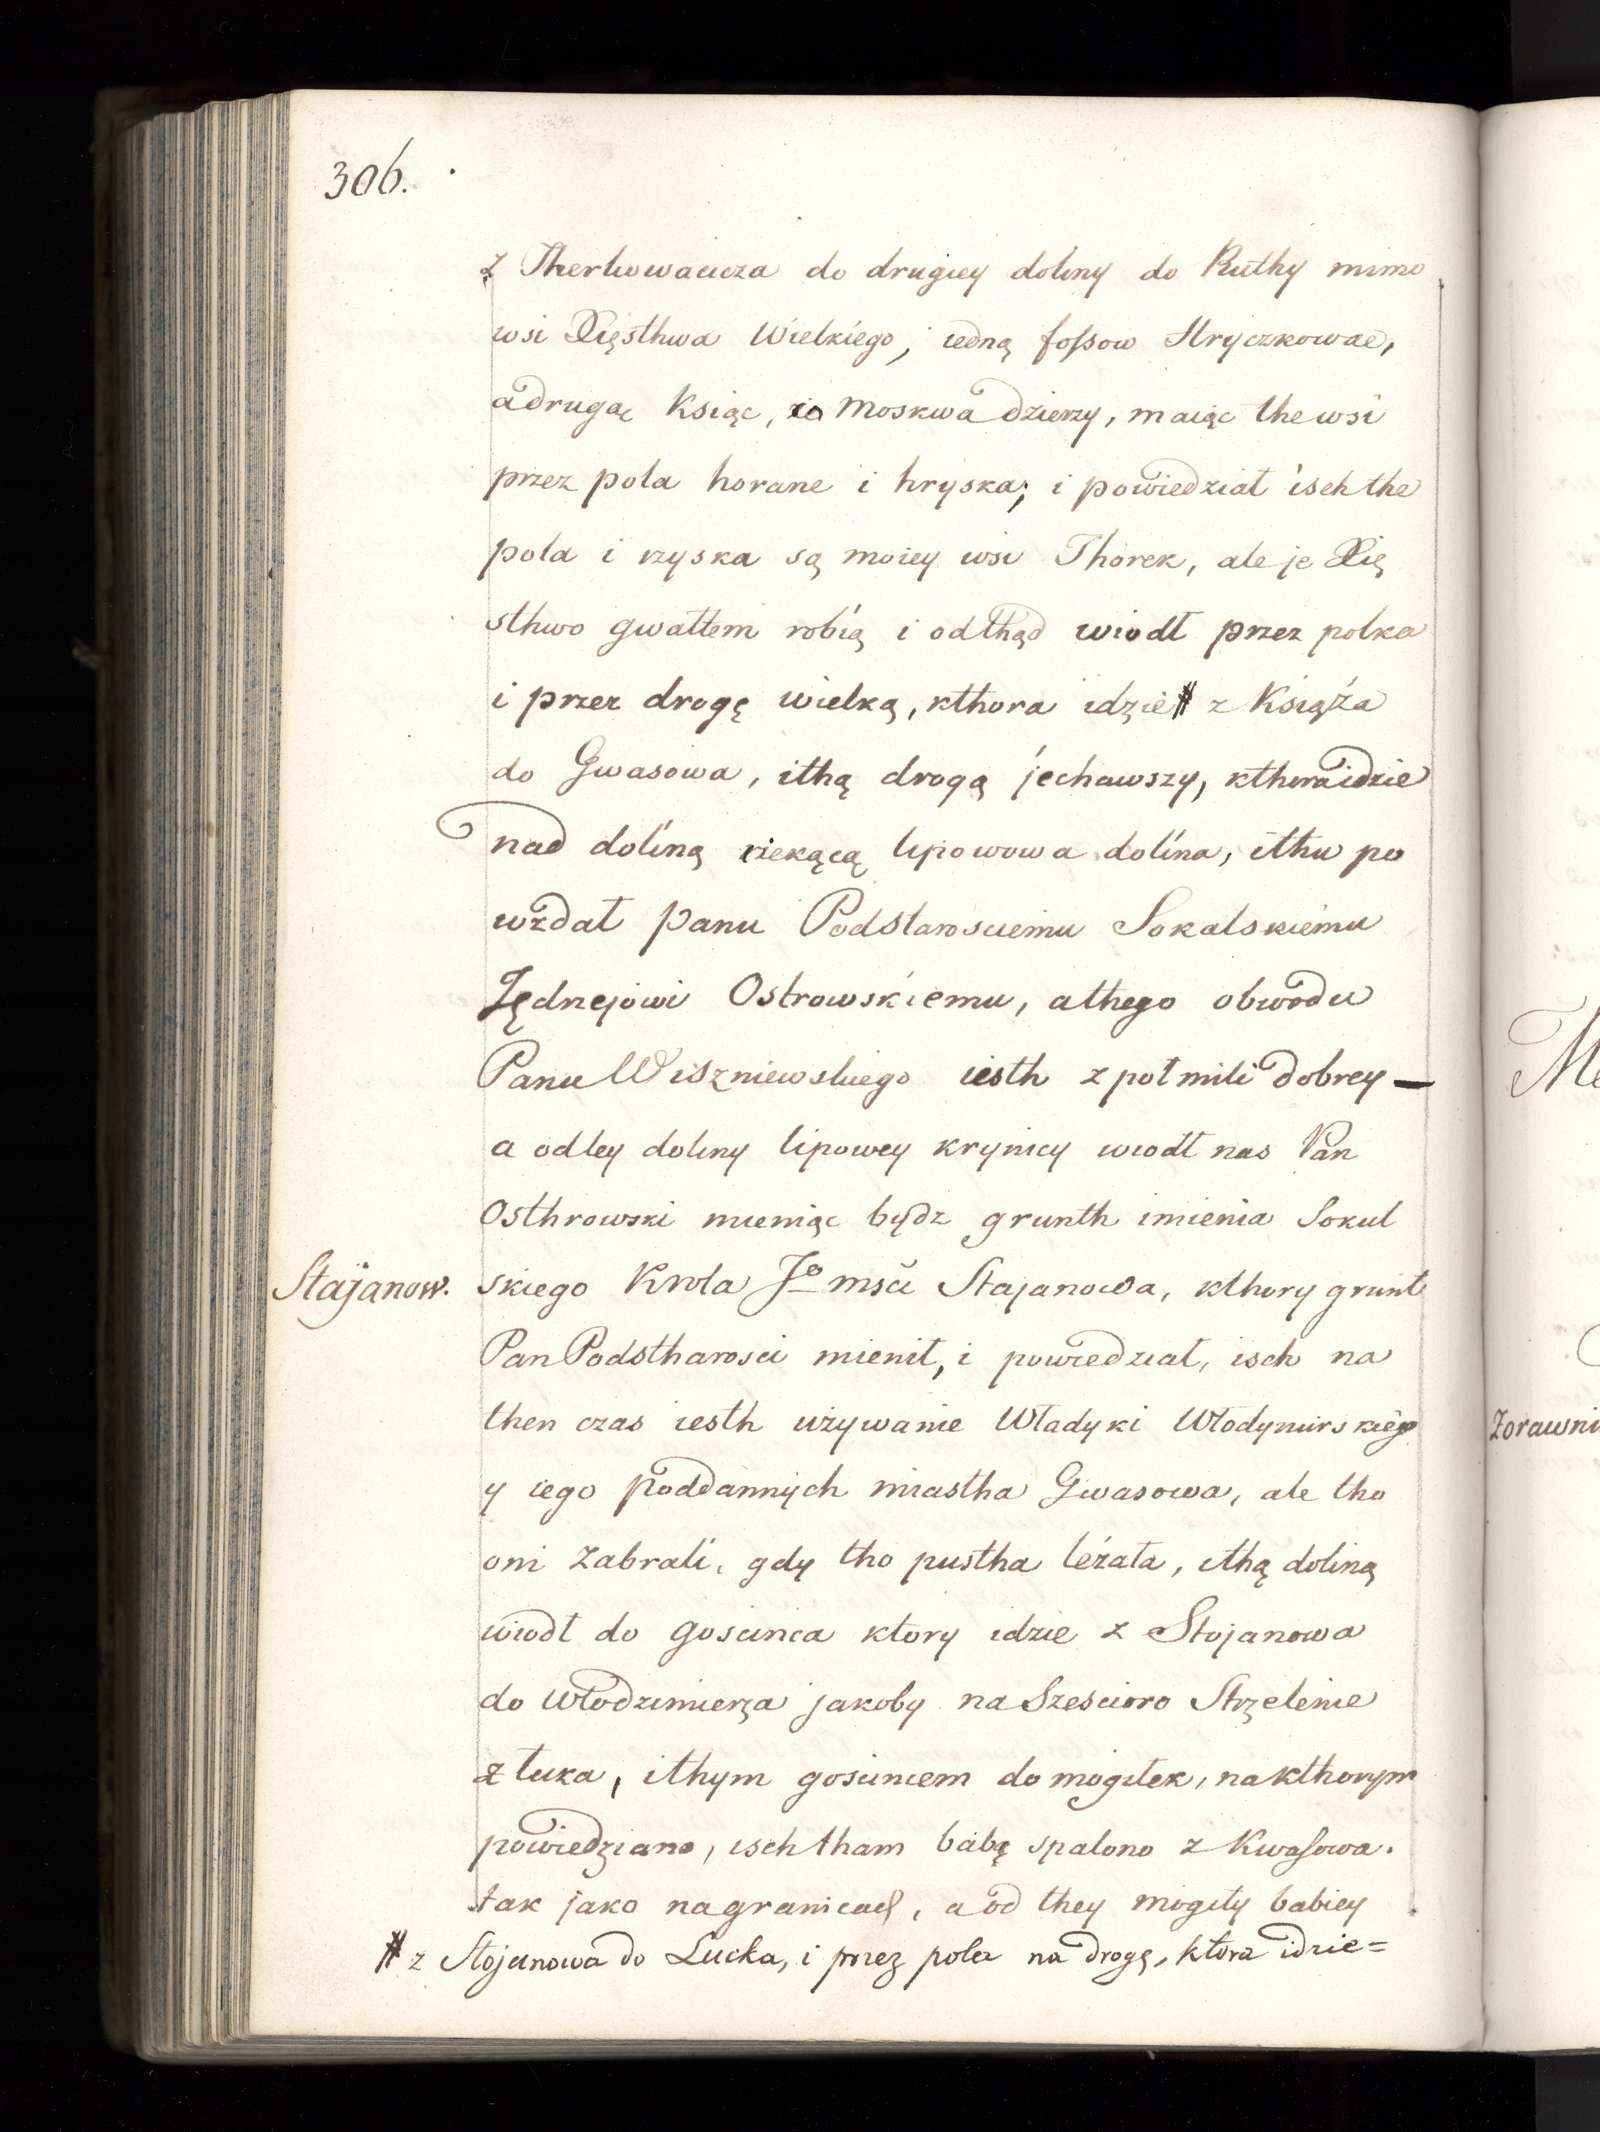 306.
z Therhowaticza do drugiey doliny do Ruthy mimo
wsi Xięsthwa Wielkiego, iedną foſsow Hryczkowae,
a drugąc Książ, co Moskwa dzierzy, maiąc the wsi
przez pola horane i hryska; i powiedział isch the
pola i rzyska są moiey wsi Thorek, ale je Xię
sthwo gwałtem robią i odthąd wiodł przez polka
i przez drogę wielką, kthora idzie # z Książa
do Gwasowa, ithą drogą jechawszy, kthora idzie
nad doliną rzekącą lipowowa dolina, ithu po
wzdał Panu Podstarosciemu Sokalskiemu
Jędrzejowi Ostrowskiemu, a thego obwodu
Panu Wiszniewskiego iesth z poł mili dobrey —
a odtey doliny lipowey krynicy wiodł nas Pan
Osthrowski mieniąc bydz grunth imienia Sokal
Stajanow.
skiego Krola Jo msci Stajanowa, kthory grunt
Pan Podstharosci mienił, i powiedział, isch na
then czas iesth używanie Władyki Włodymirskiego
y iego poddannych miastha Gwasowa, ale tho
oni zabrali, gdy tho pustha leżała, ithą doliną
wiodł do goscinca ktory idzie z Stojanowa
do Włodzimierza jakoby na Szescioro Strzelenie
z łuka, ithym goscincem do mogiłek, na kthorym
powiedziano, isch tham babę spalono z Kwasowa.
tak jako na granicach, a od they mogiły babiey
# z Stojanowa do Lucka, i przez pola na drogę, ktora idzie=
Zorawni